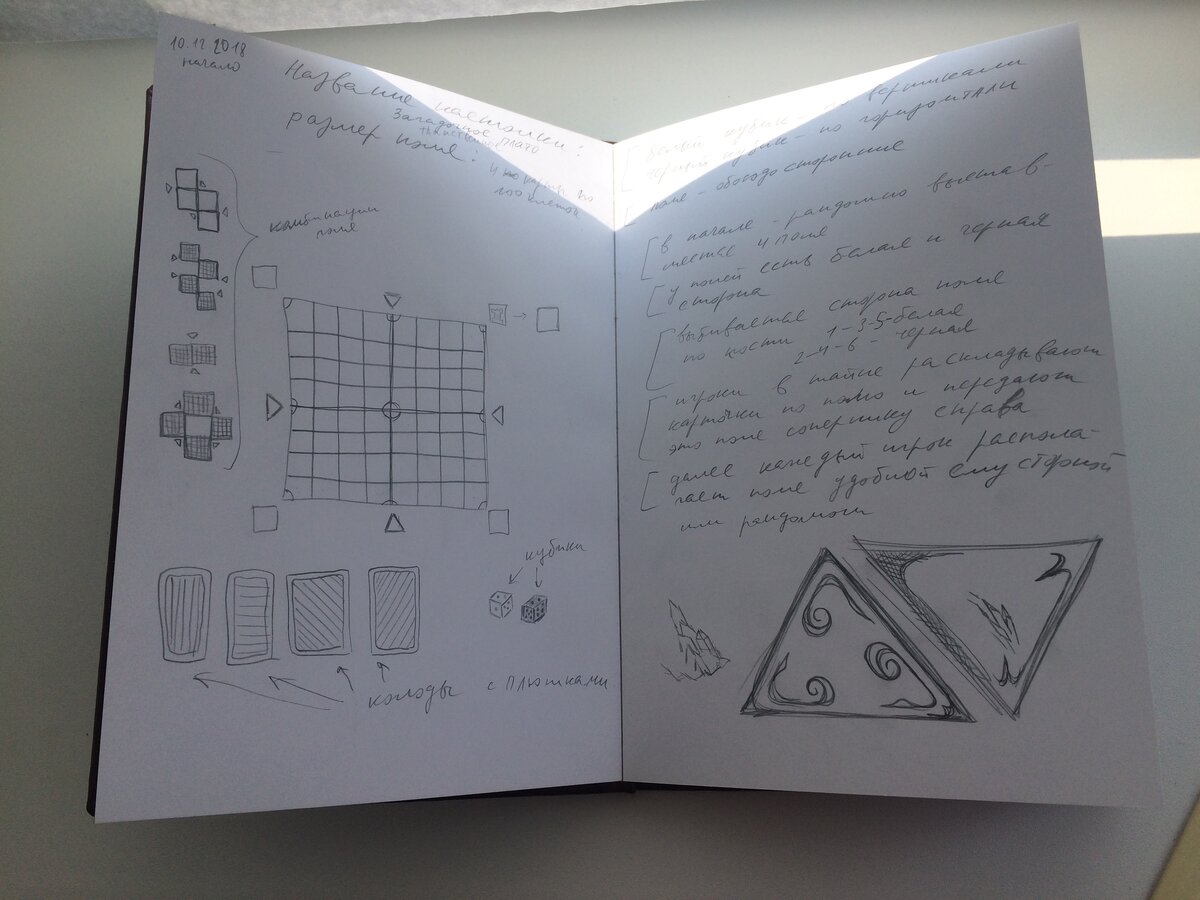 10.12.2018
начало
Название настолки:
Загадочное
таинственное плато
размер поля: 4 по
100 клеток
комбинации
поля
кубики
колоды с плюшками
белый кубик - по вертикали
черный кубик - по горизонтали
поле - обоюдосторонние
в начале - рандомно выстав-
4 поля
у полей есть белая и черная
сторона
выбивается сторона поля
по кости 1-3-5-белая
2-4-6 - черная
игроки в тайне раскладывают
карточки по полю и передают
это поле сопернику справа
далее каждый игрок распола-
гает поле удобной ему стороной
или рандомом